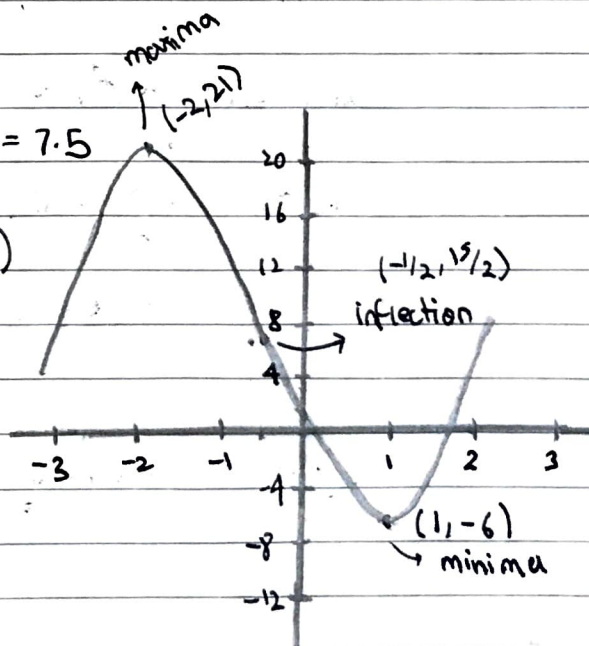 maxima
(-2,21)
= 7.5
)
20
16
12
(-1/2, 15/2)
8
inflection
4
-3 -2 -1 1 2 3
-4
(1,-6)
-8
minima
-12